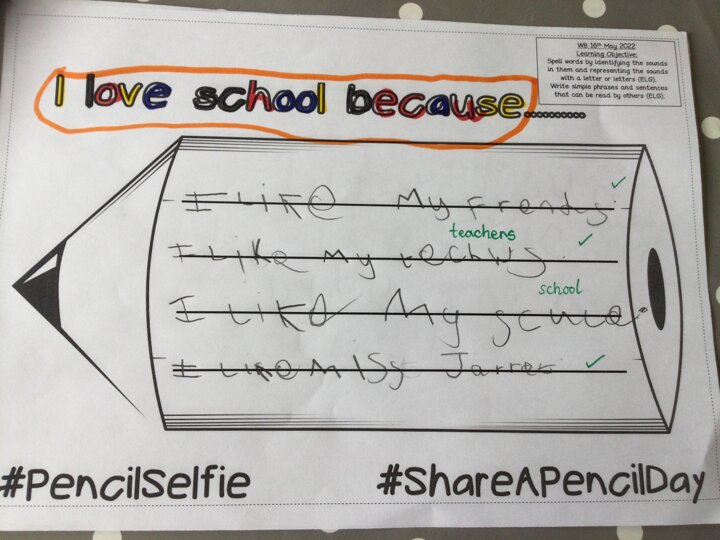 WB 16th May 2022
Learning Objective:
Spell words by identifying the sounds
in them and representing the sounds
with a letter or letters (ELG).
Write simple phrases and sentences
that can be read by others (ELG).
I love school because..........
I LiKe My Frends.
teachers
I Like my techws.
school
I LiKe My scule.
I Like MISS Jarret.
#PencilSelfie
#ShareAPencilDay